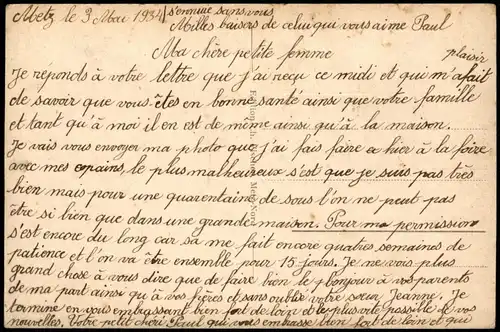 Metz le 3 Mai 1934 s'ennuie sans vous
Milles baisers de celui qui vous aime Paul
Ma chère petite femme
plaisir
Je réponds à votre lettre que j'ai reçu ce midi et qui m'a fait
de savoir que vous êtes en bonne santé ainsi que votre famille
et tant qu'à moi il en est de même ainsi qu'à la maison.
Je vais vous envoyer ma photo que j'ai fais faire hier à la foire
avec mes copains, le plus malheureux s'est que je suis pas très
bien mais pour une quarentaine de sous l'on ne peut pas
être si bien que dans une grande maison. Pour ma permission
s'est encore du long car sa me fait encore quatres semaines de
patience et l'on va être ensemble pour 15 jours. Je ne vois plus
grand chose à vous dire que de faire bien le bonjour à vos parents
de ma part ainsi qu'à vos frères et sans oublié votre sœur Jeanne. Je
termine en vous embrassant bien fort de loin et le plus vite possible de vos
nouvelles. Votre petit chéri Paul qui vous embrasse bien fort de loin et qui